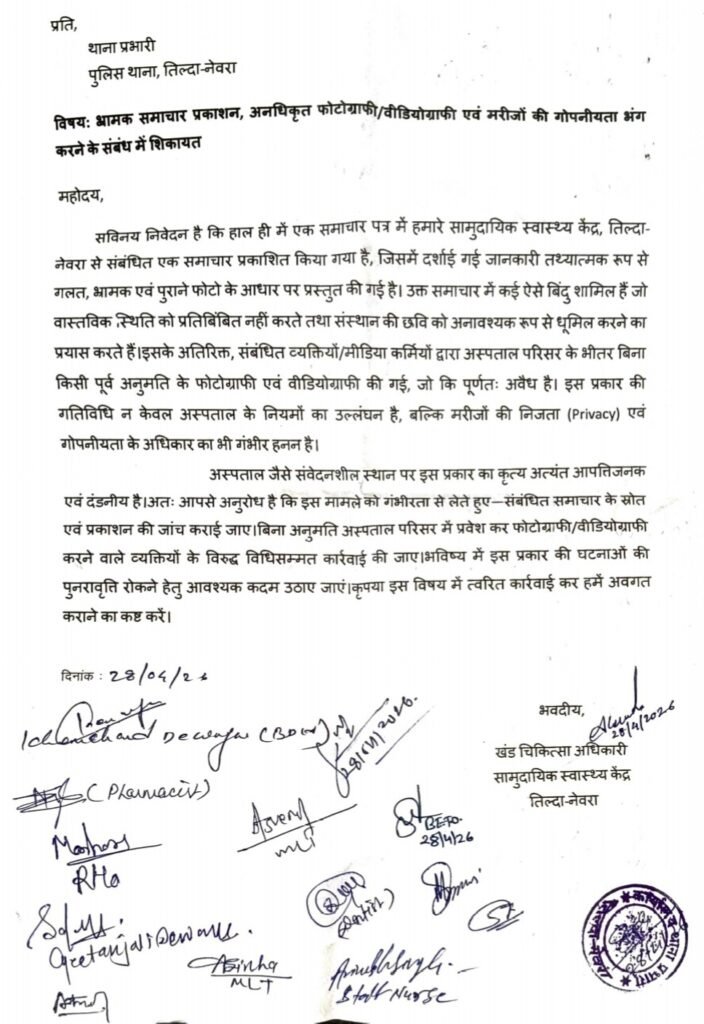 प्रति,
थाना प्रभारी
पुलिस थाना, तिल्दा-नेवरा
विषय: भ्रामक समाचार प्रकाशन, अनधिकृत फोटोग्राफी/वीडियोग्राफी एवं मरीजों की गोपनीयता भंग
करने के संबंध में शिकायत
महोदय,
सविनय निवेदन है कि हाल ही में एक समाचार पत्र में हमारे सामुदायिक स्वास्थ्य केंद्र, तिल्दा-
नेवरा से संबंधित एक समाचार प्रकाशित किया गया है, जिसमें दर्शाई गई जानकारी तथ्यात्मक रूप से
गलत, भ्रामक एवं पुराने फोटो के आधार पर प्रस्तुत की गई है। उक्त समाचार में कई ऐसे बिंदु शामिल हैं जो
वास्तविक स्थिति को प्रतिबिंबित नहीं करते तथा संस्थान की छवि को अनावश्यक रूप से धूमिल करने का
प्रयास करते हैं।इसके अतिरिक्त, संबंधित व्यक्तियों/मीडिया कर्मियों द्वारा अस्पताल परिसर के भीतर बिना
किसी पूर्व अनुमति के फोटोग्राफी एवं वीडियोग्राफी की गई, जो कि पूर्णतः अवैध है। इस प्रकार की
गतिविधि न केवल अस्पताल के नियमों का उल्लंघन है, बल्कि मरीजों की निजता (Privacy) एवं
गोपनीयता के अधिकार का भी गंभीर हनन है।
अस्पताल जैसे संवेदनशील स्थान पर इस प्रकार का कृत्य अत्यंत आपत्तिजनक
एवं दंडनीय है।अतः आपसे अनुरोध है कि इस मामले को गंभीरता से लेते हुए—संबंधित समाचार के स्रोत
एवं प्रकाशन की जांच कराई जाए।बिना अनुमति अस्पताल परिसर में प्रवेश कर फोटोग्राफी/वीडियोग्राफी
करने वाले व्यक्तियों के विरुद्ध विधिसम्मत कार्रवाई की जाए।भविष्य में इस प्रकार की घटनाओं की
पुनरावृत्ति रोकने हेतु आवश्यक कदम उठाए जाएं।कृपया इस विषय में त्वरित कार्रवाई कर हमें अवगत
कराने का कष्ट करें।
दिनांक : 28/04/26
भवदीय,
28/4/2026
खंड चिकित्सा अधिकारी
सामुदायिक स्वास्थ्य केंद्र
तिल्दा-नेवरा
(Pharmacist)
MLT
BETO
28/4/26
RHO
(Dentist)
Geetanjali Dewangan
Asinha
MLT
Staff Nurse
कार्यालय थाना प्रभारी